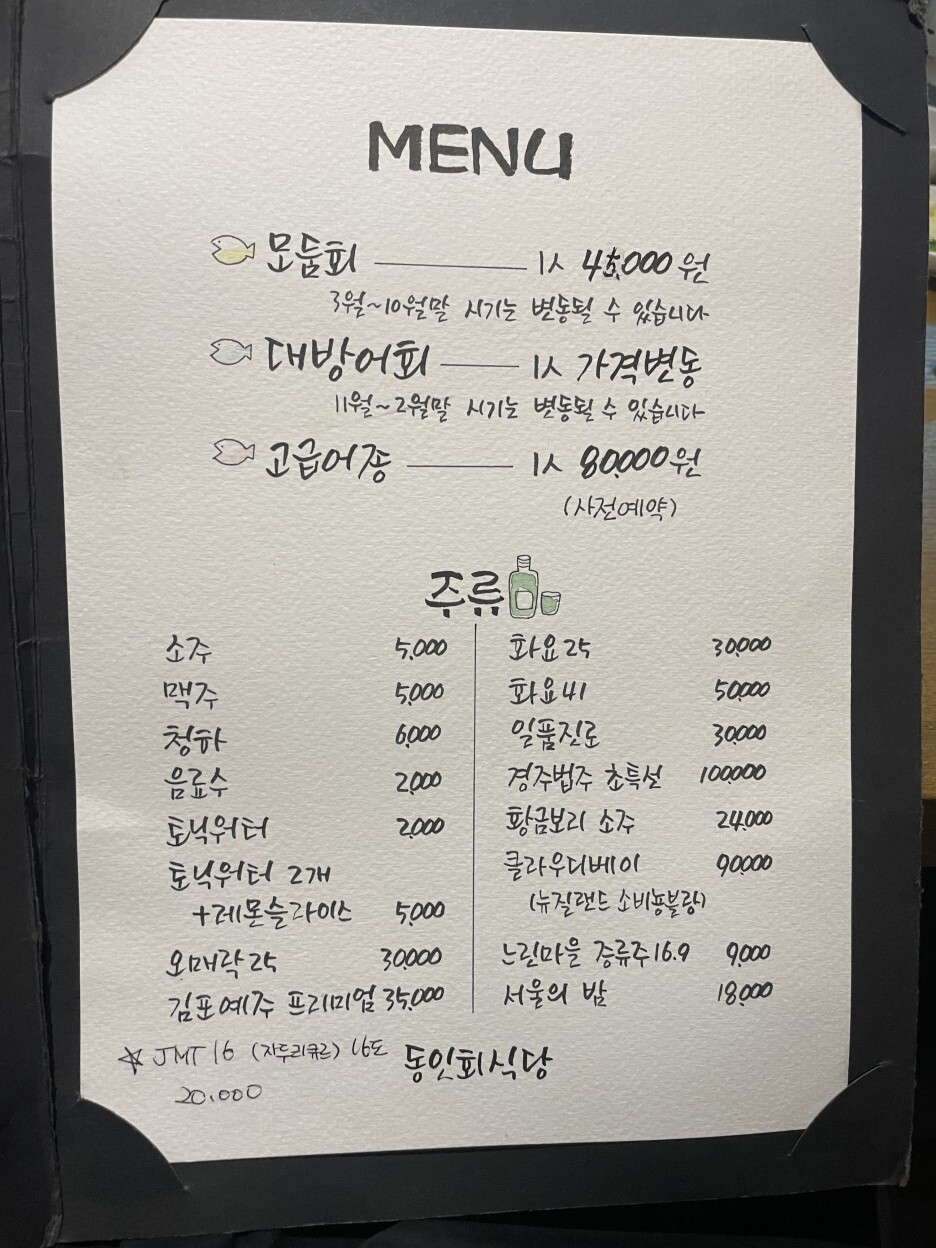 MENU
모둠회 1人 45,000원
3월~10월말 시기는 변동될 수 있습니다
대방어회 1人 가격변동
11월~2월말 시기는 변동될 수 있습니다
고급어종 1人 80,000원
(사전예약)
주류
소주 5,000
맥주 5,000
청하 6,000
음료수 2,000
토닉워터 2,000
토닉워터 2개
+레몬슬라이스 5,000
오매락25 30,000
김포예주 프리미엄 35,000
화요25 30,000
화요41 50,000
일품진로 30,000
경주법주 초특선 100,000
황금보리 소주 24,000
클라우디베이 90,000
(뉴질랜드 소비뇽블랑)
느린마을 증류주16.9 9,000
서울의 밤 18,000
☆ JMT 16 (자두리큐르) 16도
20,000
동인회식당